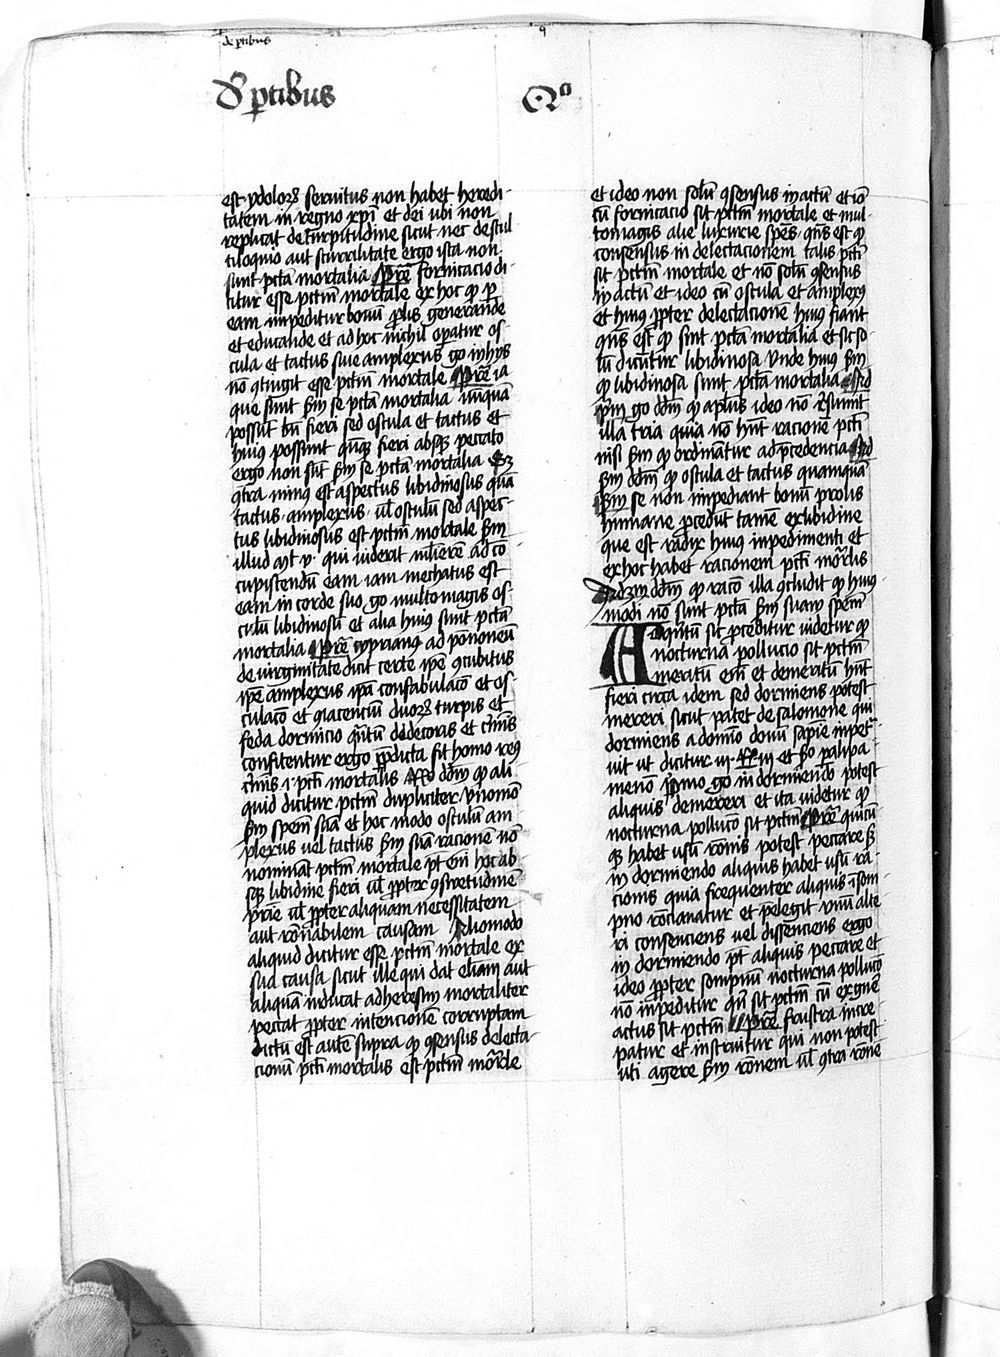 de ptibus
9
De ptibus
Qo
est ydoloꝝ seruitus non habet heredi-
tatem in regno xpi et dei ubi non
replicat de turpitudine sicut nec de stul
tiloquio aut scurrilitate ergo ista non
sunt pctā mortalia Pretē fornicacio di
citur esse pctm̄ mortale ex hoc ꝙ ꝑ
eam impeditur bonū prolis generande
et educande et ad hoc nichil opatur os
cula et tactus siue amplexus go in hijs
nō ꝯtingit esse pctm̄ mortale Pretē ea
que sunt ẜm se pctā mortalia nūquā
possūt bn̄ fieri sed oscula et tactus et
huiꝰ possunt qn̄qꝫ fieri absqꝫ peccato
ergo non sūt ẜm se pctā mortalia Sꝫ
ꝯtra minus est aspectus libidinosus quā
tactus amplexus ul̄ osculū sed aspec-
tus libidinosus est pctm̄ mortale ẜm
illud mt̄ v· qui uiderit mlīerē ad cō
cupiscendū eam iam mechatus est
eam in corde suo go multo magis os-
culū libidinosū et alia huiꝰ sunt pctā
mortalia Pretē cyprianus ad pōponeū
de virginitate dicit certe ipē ꝯcubitus
ipē amplexus ipā confabulaco et os-
culaco et giacenciū duoꝝ turpis et
feda dormicio quātū dedecoris et cͥmīs
confitentur ergo p̄dicta fit homo reꝰ
cͥmīs i· pcti mortalis Rꝰ dd̄m ꝙ ali-
quid dicitur pctm̄ dupliciter vnomo
ẜm spem suā et hoc modo osculū am
plexus uel tactus ẜm suā racione nō
nominat pctm̄ mortale pt eni hoc ab-
sqꝫ libidine fieri ul̄ ꝓpter ꝯswetudinē
prīe ul̄ ꝓpter aliquam necessitatem
aut rōnabilem causam Aliomodo
aliquid dicitur esse pctm̄ mortale ex
sua causa sicut ille qui dat elīam aut
aliquā inducat ad heresim mortaliter
peccat ꝓpter intencionē corruptam
dictū est autē supra ꝙ ꝯsensus delecta-
cionū pcti mortalis est pctm̄ mōrale
et ideo non solū ꝯsensus in actū et iō
cū fornicacio sit pctm̄ mortale et mul-
tomagis alie luxurie spes qn̄s est ꝙ
consensus in delectacionem talis pcti
sit pctm̄ mortale et nō solū ꝯsensus
in actū et ideo cū oscula et amplexꝰ
et huiꝰ ꝓpter delectacionē huiꝰ fiant
qn̄s est ꝙ sint pctā mortalia et sic so-
lū dicūtur libidinosa Unde huiꝰ ẜm
ꝙ libidinosa sunt pctā mortalia Ad
pͥm go dd̄m ꝙ aplus ideo nō rͤsumit
illa tria quia nō hn̄t racionē pcti
nisi ẜm ꝙ ordinātur ad p̄cedencia Ad
ẜm dd̄m ꝙ oscula et tactus quamquā
ẜm se non impediant bonū prolis
humane ꝓcedūt tamē ex libidine
que est radix huiꝰ impedimenti et
ex hoc habet racionem pcti mōrlis
Ad 3m dd̄m ꝙ raco illa ꝯcludit ꝙ huiꝰ
modi nō sunt pctā ẜm suam spem
Ad quintū sic ꝓceditur videtur ꝙ
nocturna pollucio sit pctm̄
meritū em̄ et demeritū hn̄t
fieri circa idem sed dormiens potest
mereri sicut patet de salomone qui
dormiens a domīo donū sapīe inpet̄-
uit ut dicitur iij Rͤ iij et ẜo palipa-
menō pͥmo go in dormiendo potest
aliquis demereri et ita videtur ꝙ
nocturna pollucō sit pctm̄ Pretē quicū
qꝫ habet usū rōnis potest peccare sꝫ
in dormiendo aliquis habet usū ra-
cionis quia frequenter aliquis ī som-
pno rōcinatur et pͤelegit vnū alte
ri consenciens uel dissenciens ergo
in dormiendo pt̄ aliquis peccare et
ideo ꝓpter sompnū nocturna pollucō
nō inpeditur qn̄ sit pctm̄ cū ex gn̄e
actus sit pctm̄ Pretē frustra incre
patur et instruitur qui non potest
uti agere ẜm rōnem ul̄ ꝯtra rōnē